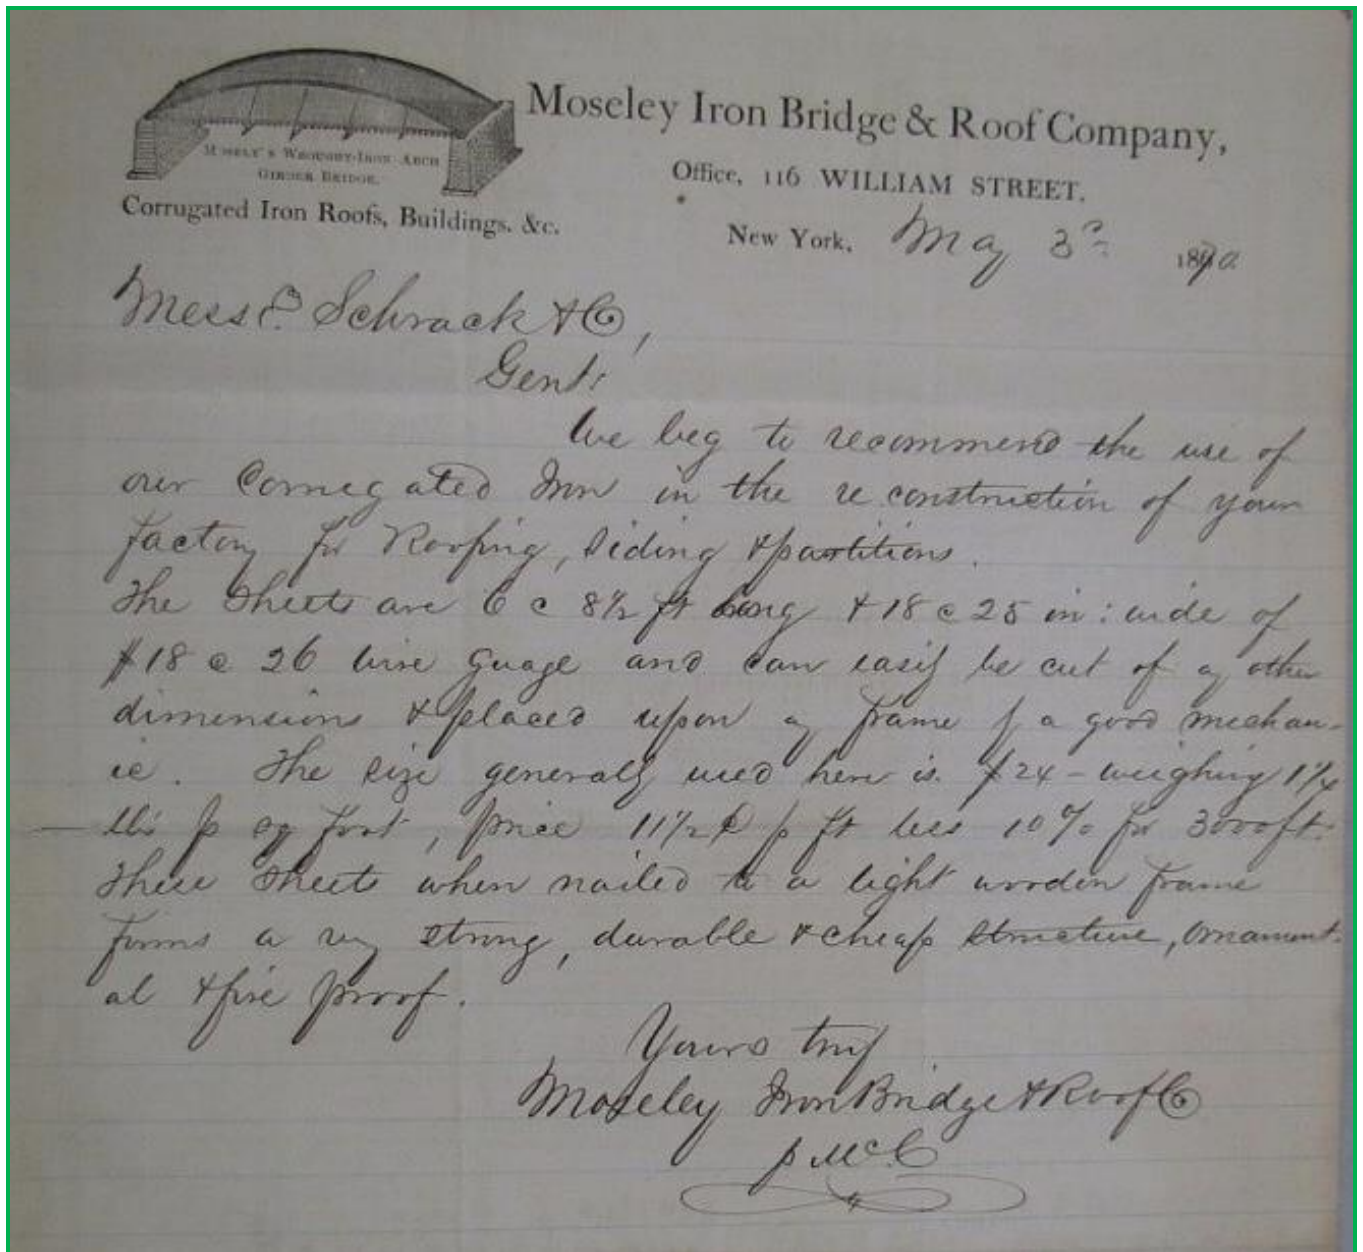 Moseley Iron Bridge & Roof Company,
MOSELY'S WROUGHT-IRON ARCH
GIRDER BRIDGE.
Office, 116 WILLIAM STREET.
Corrugated Iron Roofs, Buildings, &c.
New York, May 3d 1870
Messrs Schrack & Co,
Gents
We beg to recommend the use of
our Corregated Iron in the re construction of your
factory for Roofing, Siding & partitions.
The Sheets are 6 @ 8½ ft long & 18 @ 25 in: wide of
#18 @ 26 wire guage and can easily be cut of any other
dimensions & placed upon any frame by a good mechan-
ic. The size generally used here is #24 - weighing 1¼
lbs p sq foot, price 11½ ¢ p ft less 10% for 3000 ft.
These Sheets when nailed to a light wooden frame
forms a very strong, durable & cheap structure, ornament-
al & fire proof.
Yours truly
Moseley Iron Bridge & Roof Co
p McC